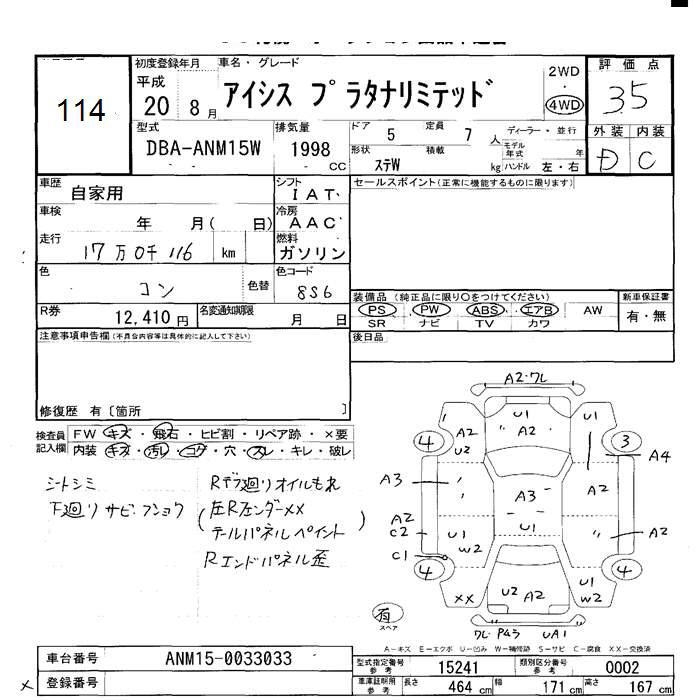 114
初度登録年月 車名・グレード
平成 20 8月
アイシス プラタナリミテッド
2WD
・
4WD
評価点
35
型式 DBA-ANM15W
排気量 1998 CC
ドア 5 定員 7人
形状 ステW 積載 kg
ディーラー・並行
モデル年式 年
ハンドル 左・右
外装 内装
D C
車歴 自家用
シフト IAT
車検 年 月( 日)
冷房 AAC
走行 17万0千116 km
燃料 ガソリン
色 コン 色替
色コード 8S6
R券 12,410円
名変通知期限 月 日
セールスポイント(正常に機能するものに限ります)
装備品 (純正品に限り○をつけてください)
PS PW ABS エアB AW
SR ナビ TV カワ
新車保証書
有・無
後日品
注意事項申告欄(不具合内容等は具体的に記入して下さい)
修復歴 有〔箇所 〕
検査員記入欄
FW キズ・飛石・ヒビ割・リペア跡・×要
内装 キズ・汚レ・コゲ・穴・スレ・キレ・破レ
シートシミ
下廻りサビ・フショク
Rデフ廻りオイルもれ
(左Rフェンダー××
テールパネルペイント)
Rエンドパネル歪
A2・ワレ
U1
A2
A2
U2
U1
4
3
A4
A3
A3
A2
A2
C2
U1
W2
U1
A2
C1
4
4
××
U2
A2
U1
W2
有
スペア
ワレ P43 UA1
A-キズ E-エクボ U-凹み W-補修跡 S-サビ C-腐食 XX-交換済
車台番号 ANM15-0033033
登録番号
型式指定番号 参考 15241
類別区分番号 参考 0002
車庫証明用 参考 長さ 464cm 幅 171cm 高さ 167cm